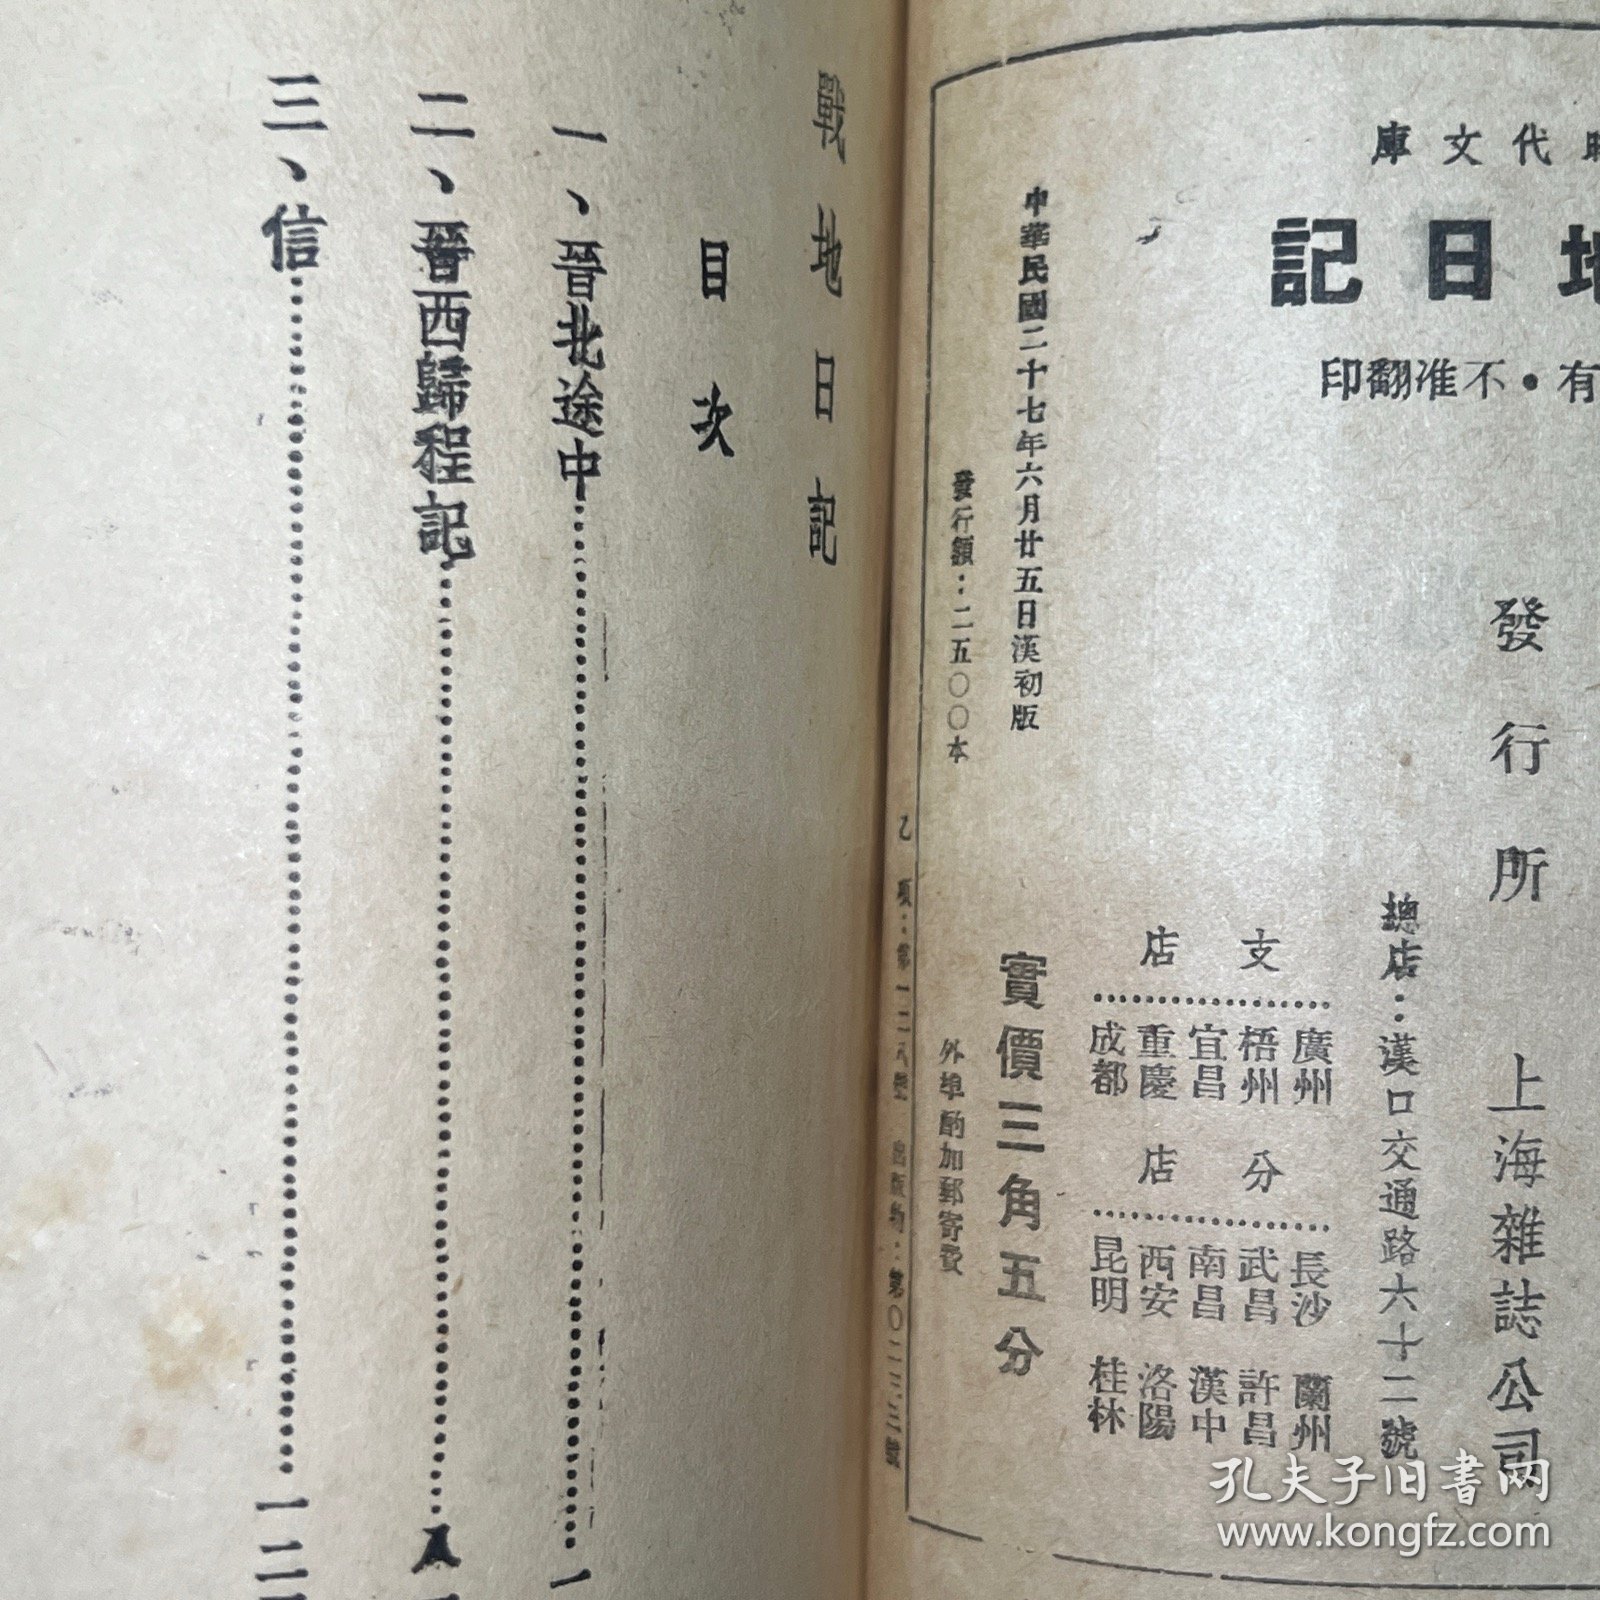 代文庫
地日記
有•不准翻印
發行所 上海雜誌公司
總店：漢口交通路六十二號
支店
廣州
梧州
宜昌
重慶
成都
分店
長沙 蘭州
武昌 許昌
南昌 漢中
西安 洛陽
昆明 桂林
實價三角五分
外埠酌加郵寄費
中華民國二十七年六月廿五日漢初版
發行額：二五〇〇本
戰地日記
目次
一、晉北途中……一
二、晉西歸程記……
三、信……一二
孔夫子旧书网
www.kongfz.com